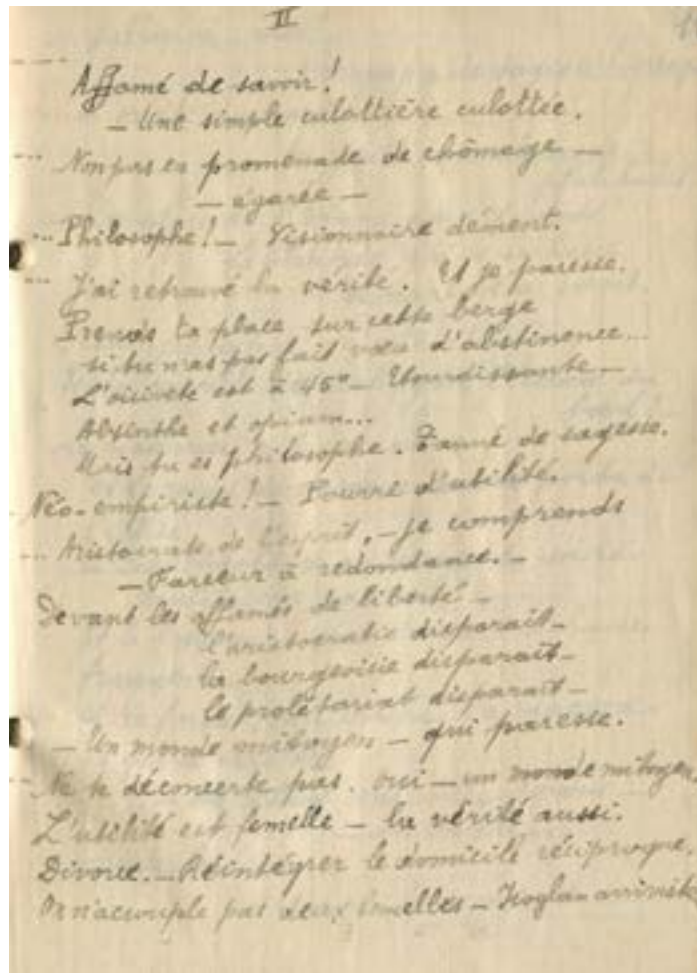 II
Affamé de savoir!
— Une simple culottière culottée.
... Non pas en promenade de chômage —
— égarée —
... Philosophe! — Visionnaire dément.
... J'ai retrouvé la vérité. Et je paresse.
Prends ta place sur cette berge
si tu n'as pas fait vœu d'abstinence...
L'oisiveté est à 45° — Etourdissante —
Absinthe et opium...
Mais tu es philosophe. Tanné de sagesse.
Néo-empiriste! — Fourré d'utilité.
... Aristocrate de l'esprit, — je comprends
— Farceur à redondance. —
Devant les affamés de liberté —
l'aristocratie disparait —
la bourgeoisie disparait —
le prolétariat disparait —
— Un monde mitoyen — qui paresse.
Ne te déconcerte pas. oui — un monde mitoyen
L'utilité est femelle — la vérité aussi.
Divorce. — Réintégrer le domicile réciproque.
On n'accouple pas deux femelles — arriviste